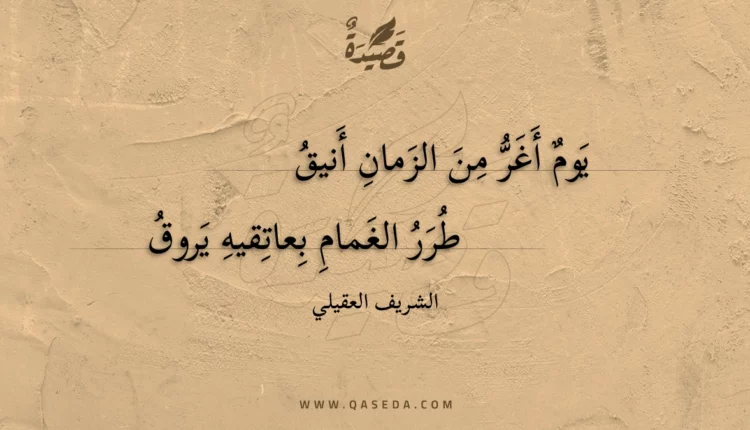 قَصِيدَةٌ
يَومٌ أَغَرُّ مِنَ الزَمانِ أَنيقُ
طُرَرُ الغَمامِ بِعاتِقيهِ يَروقُ
الشريف العقيلي
WWW.QASEDA.COM